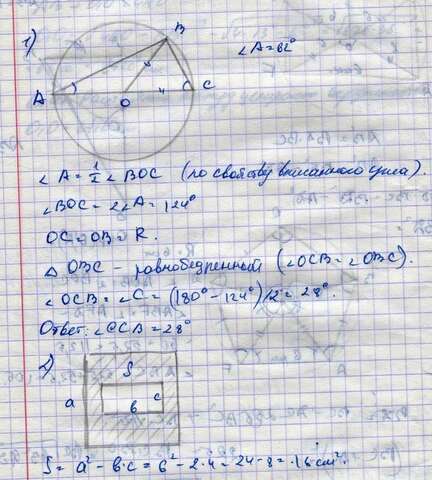 1)
B
∠A=62°
A
O
C
∠A = 1/2 ∠BOC (по свойству вписанного угла).
∠BOC = 2∠A = 124°
OC = OB = R.
△ OBC - равнобедренный (∠OCB = ∠OBC).
∠OCB = ∠C = (180° - 124°)/2 = 28°.
Ответ: ∠OCB = 28°
2)
S
a
c
b
S = a² - b·c = 6² - 2·4 = 24 - 8 = 16 см².